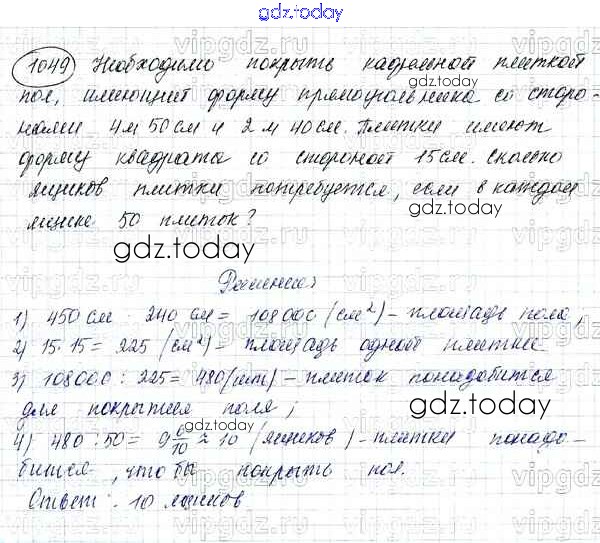 gdz.today
1049 Необходимо покрыть кафельной плиткой
пол, имеющий форму прямоугольника со сторо-
нами 4 м 50 см и 2 м 40 см. Плитки имеют
форму квадрата со стороной 15 см. Сколько
ящиков плитки потребуется, если в каждом
ящике 50 плиток?
gdz.today
gdz.today
Решение:
1) 450 см · 240 см = 108000 (см²) – площадь пола;
2) 15·15 = 225 (см²) – площадь одной плитки
3) 108000 : 225 = 480 (шт) – плиток понадобится
для покрытия поля;
gdz.today
4) 480 : 50 = 9 6/10 ≈ 10 (ящиков) – плитки понадо-
бится, чтобы покрыть пол.
Ответ: 10 ящиков
gdz.today